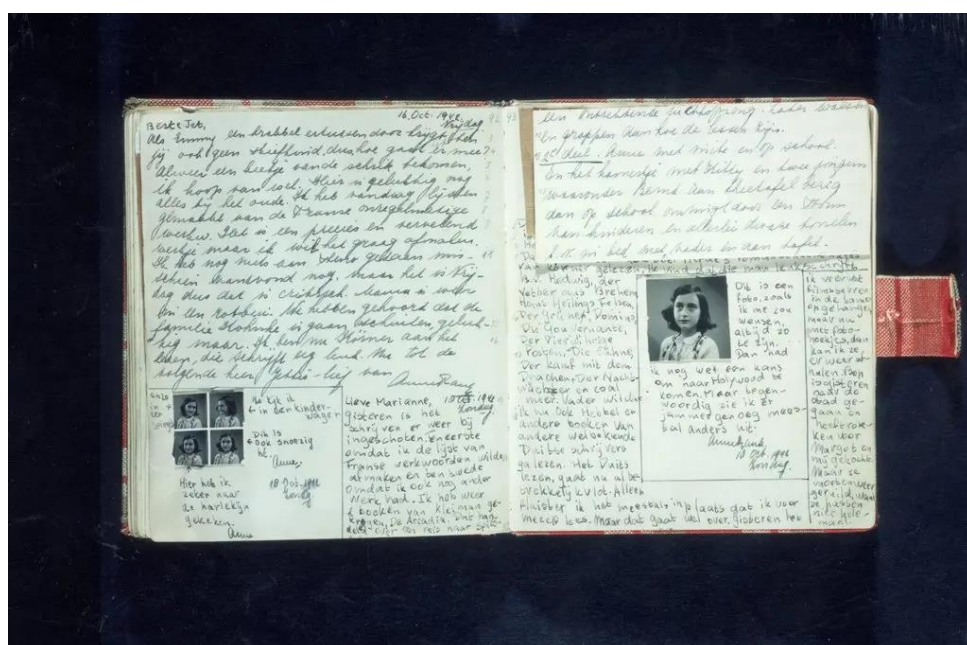 16. Oct. 1942.
Vrijdag
92
93
Beste Jet,
Als Emmy een krabbel ertussen door krijgt, ben
jij ook geen stiefkind, dus hoe gaat er mee?
Alweer een beetje van de schrik bekomen,
ik hoop van wel. Hier is gelukkig nog
alles bij het oude. Ik heb vandaag lijsten
gemaakt van de Franse onregelmatige
werkw. Het is een precies en vervelend
werkje maar ik wil het graag afmaken.
Ik heb nog niets aan steno gedaan mis-
schien vanavond nog, maar het is Vrij-
dag dus dat is critisch.
We hebben gehoord dat de
familie is gaan scheiden, geluk-
kig maar. Ik ben nu Körner aan het
lezen, die schrijft erg leuk. Nu tot de
volgende keer Jetje-lief van
Anne Frank
Hier kijk ik
in den kinder-
wagen
Dit is
ook snoezig
hè.
Anne.
Hier heb ik
zeker naar
de harlekijn
gekeken.
Anne
18 Oct. 1942
Zondag.
Lieve Marianne, 18 Oct. 1942
Zondag
gisteren is het
schrijven er weer bij
ingeschoten. Eerstens
omdat ik de lijst van
Franse werkwoorden wilde
afmaken en ten tweede
omdat ik ook nog ander
werk had. Ik heb weer
2 boeken van Kleiman ge-
kregen, De Arcadia, Dat han-
delt over een reis naar Spits-
en grappen aan hoe de lessen zijn.
2e deel. Anne met en op school.
en het kamertje met Kitty en twee jongens
waaronder Bernd aan theetafel bezig
dan op school omringd door een
kinderen en allerlei dwaze tonelen
b.v. in bed met vader en aan tafel.
gelezen.
B.v. Hedwig, der
Vetter aus Bremen,
Hans Heilings Felsen,
Der Grüne Domino,
Die Gouvernante,
Der Vierjährige
Posten, Die Sühne,
Der Kampf mit dem
Drachen, Der Nacht-
wächter en zoal
meer. Vader wil dat
ik nu ook Hebbel en
andere boeken van
andere welbekende
Duitse schrijvers
ga lezen. Het Duits
lezen, gaat nu al be-
trekkelijk vlot. Alleen
fluister ik het meestal in plaats dat ik voor
mezelf lees. Maar dat gaat wel over. gisteren heb
Dit is een
foto, zoals
ik me zou
wensen,
altijd zo
te zijn.
Dan had
ik nog wel een kans
om naar Holywood te
komen. Maar tegen-
woordig zie ik er
jammer genoeg mees-
tal anders uit.
Anne Frank.
18 Oct. 1942
Zondag.
ik weer
filmsterren
in de kamer
opgehangen,
maar nu
met foto-
hoekjes, dan
kan ik ze
er weer af-
halen.
naar de
stad ge-
gaan en
heeft rok-
ken voor
Margot en
mij gekocht.
Maar ze
moeten weer
geruild, want
ze passen
niet hele-
maal